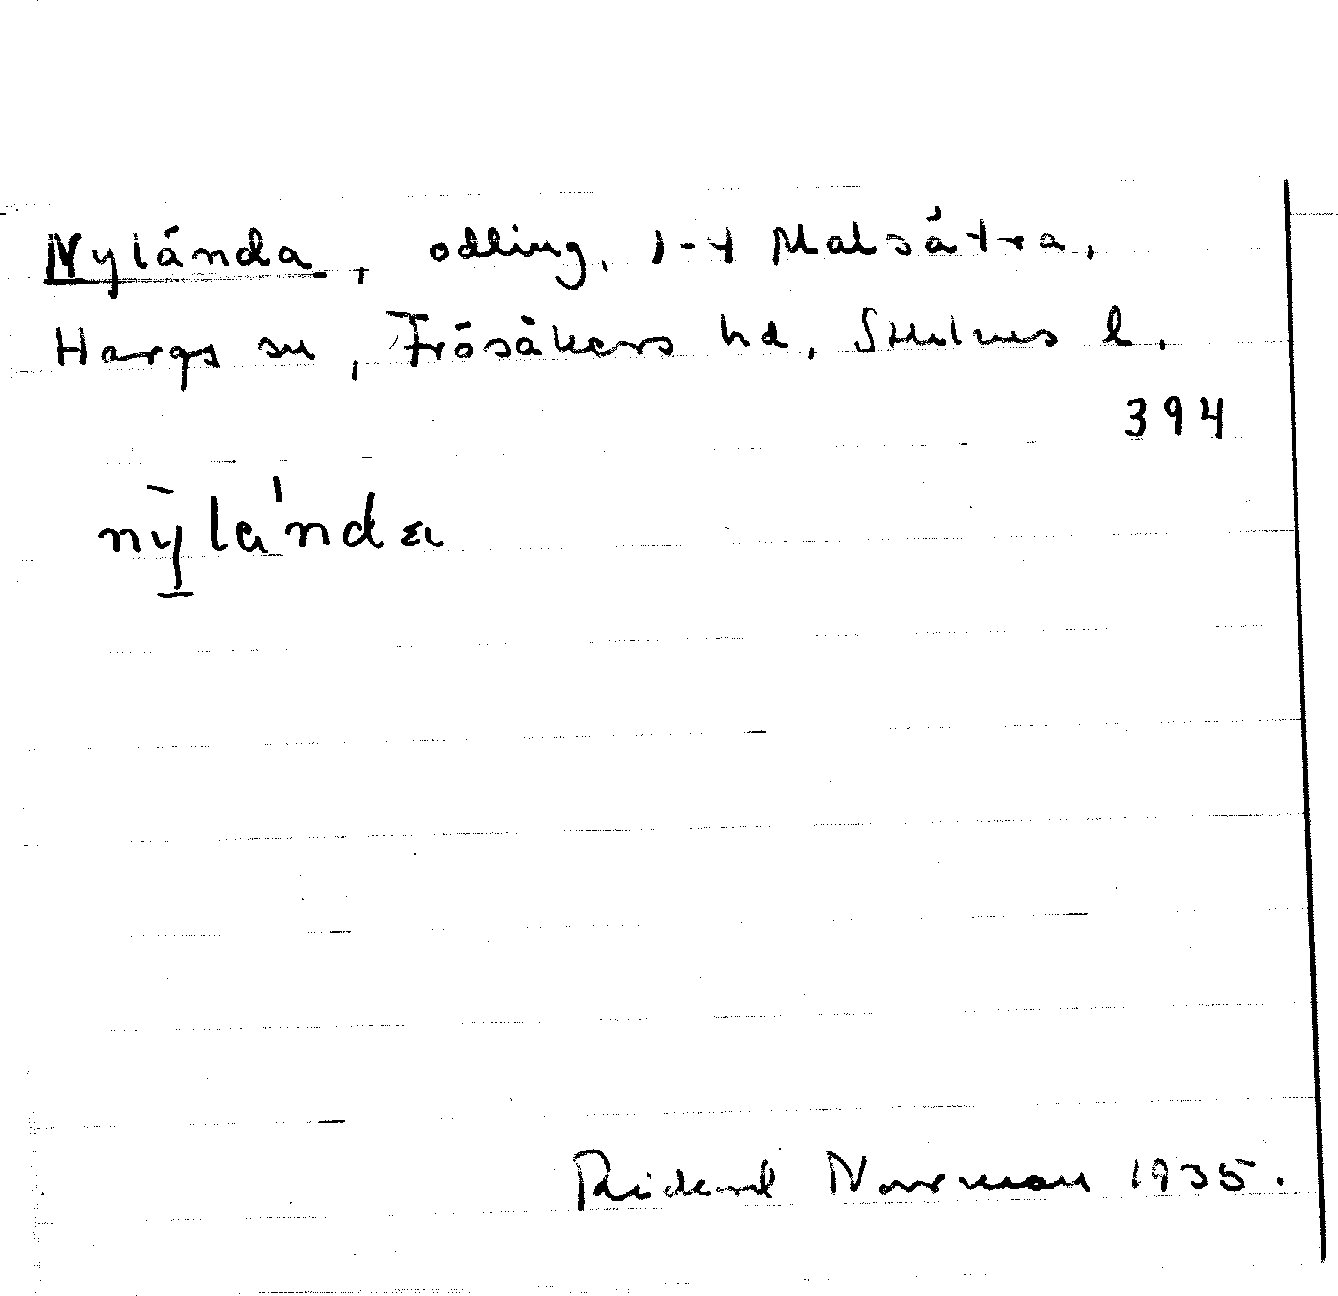 Nylánda, odling, 1-4 Malsätra,
Hargs sn, Frösåkers hd, Sthlms l.
394
nỳla'nda
Rickard Norrman 1935.